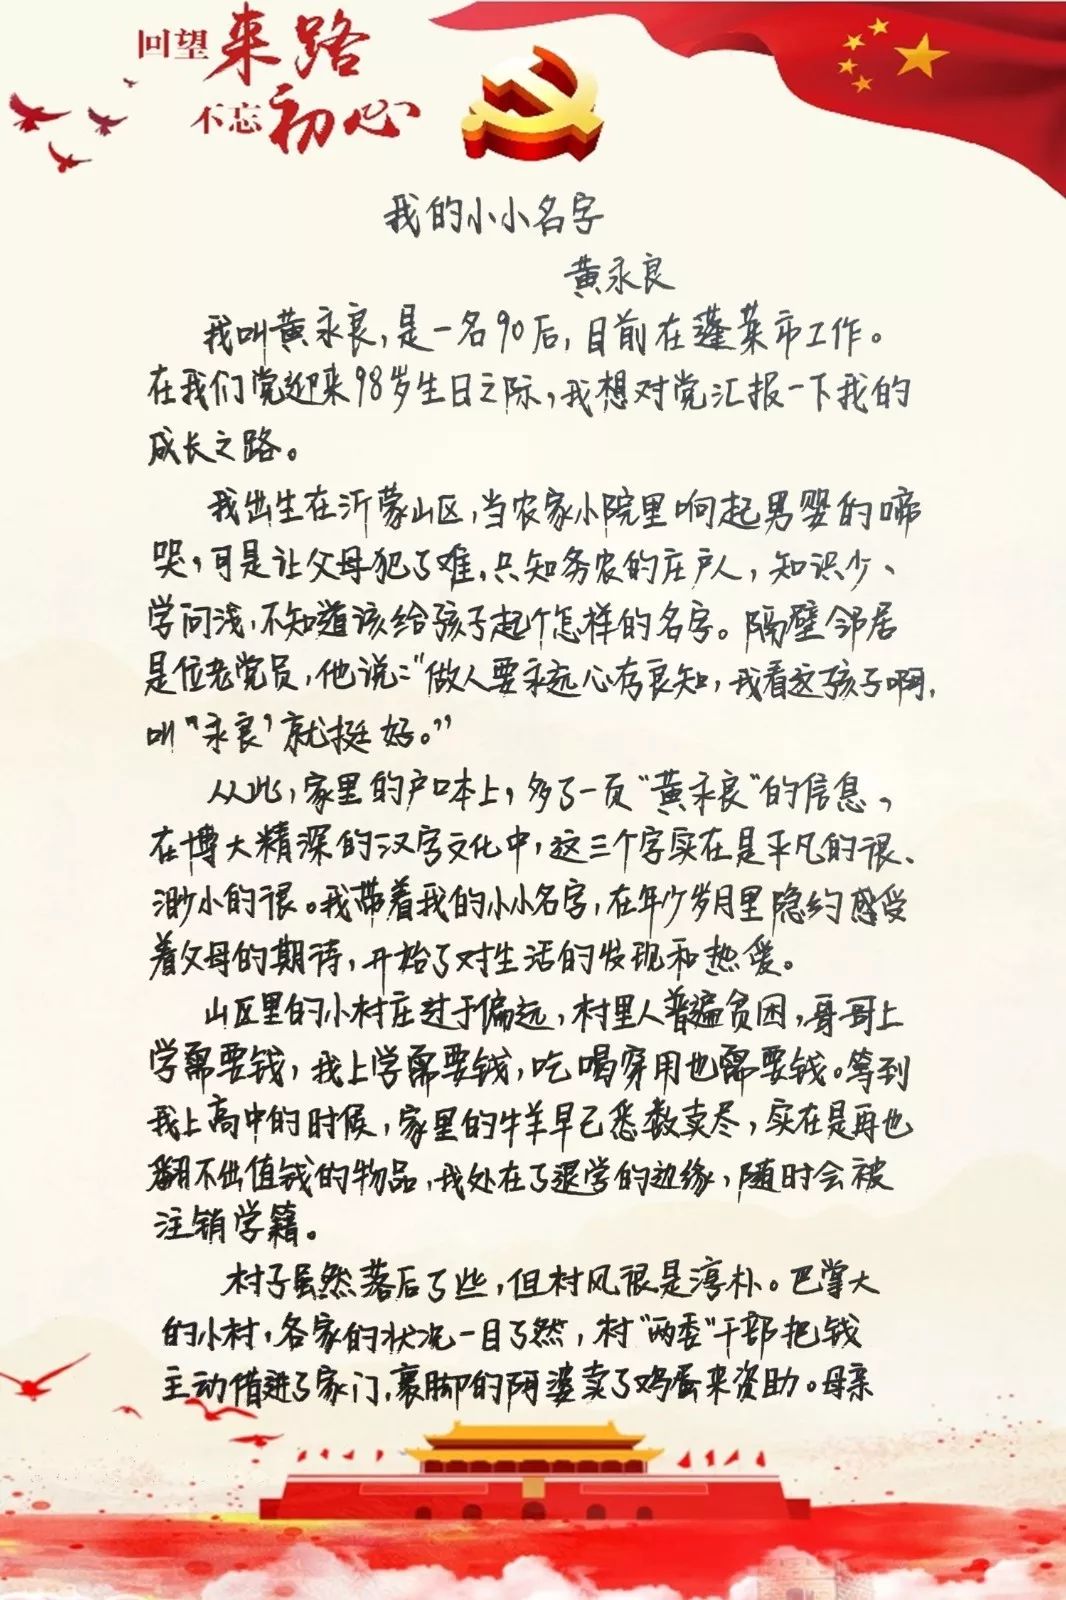 回望来路
不忘初心
我的小小名字
黄永良
我叫黄永良,是一名90后,目前在蓬莱市工作。
在我们党迎来98岁生日之际,我想对党汇报一下我的
成长之路。
我出生在沂蒙山区,当农家小院里响起男婴的啼
哭,可是让父母犯了难,只知务农的庄户人,知识少、
学问浅,不知道该给孩子起个怎样的名字。隔壁邻居
是位老党员,他说:“做人要永远心存良知,我看这孩子啊,
叫“永良’就挺好。”
从此,家里的户口本上,多了一页“黄永良”的信息,
在博大精深的汉字文化中,这三个字实在是平凡的很、
渺小的很。我带着我的小小名字,在年少岁月里隐约感受
着父母的期待,开始了对生活的发现和热爱。
山区里的小村庄过于偏远,村里人普遍贫困,哥哥上
学需要钱,我上学需要钱,吃喝穿用也需要钱。等到
我上高中的时候,家里的牛羊早已悉数卖尽,实在是再也
翻不出值钱的物品,我处在了退学的边缘,随时会被
注销学籍。
村子虽然落后了些,但村风很是淳朴。巴掌大
的小村,各家的状况一目了然,村“两委”干部把钱
主动借进了家门,裹脚的阿婆卖了鸡蛋来资助。母亲